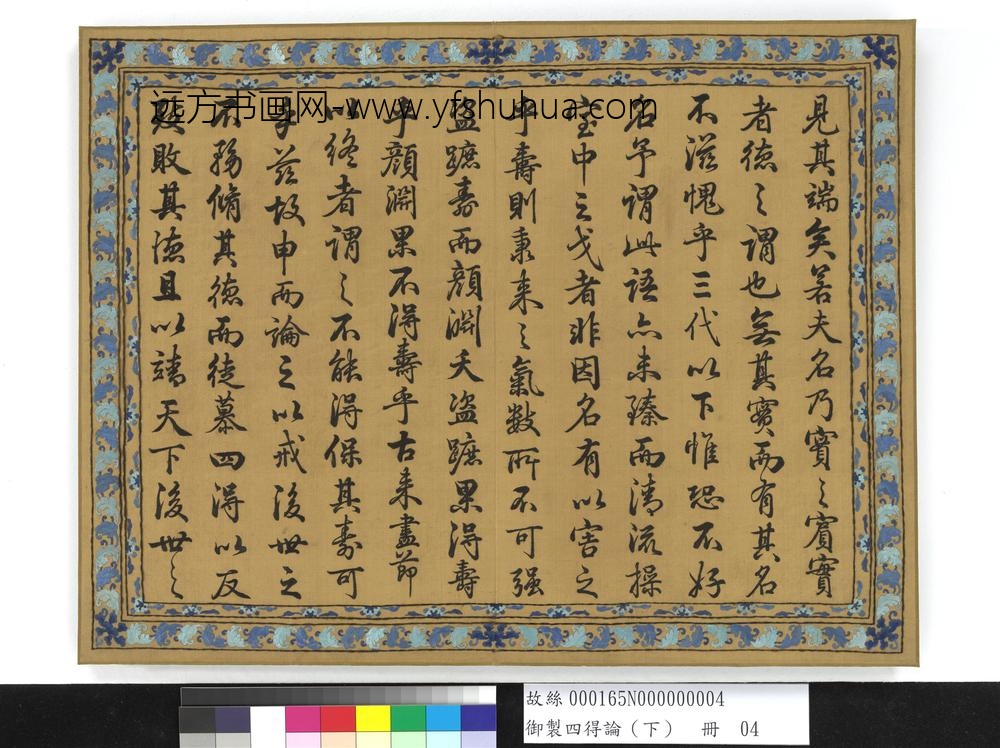 远方书画网-www.yfshuhua.com
見其端矣若夫名乃實之賓實
者德之謂也無其實而有其名
不滋愧乎三代以下惟恐不好
名予謂此語亦未臻而清流操
室中之戈者非因名有以害之
乎壽則秉來之氣數所不可强
盜蹠壽而顏淵夭盜蹠果得壽
乎顏淵果不得壽乎古來盡節
以終者謂之不能得保其壽可
乎茲故申而論之以戒後世之
不務脩其德而徒慕四得以反
敗其德且以靖天下後世之
故絲 000165N000000004
御製四得論（下） 冊 04